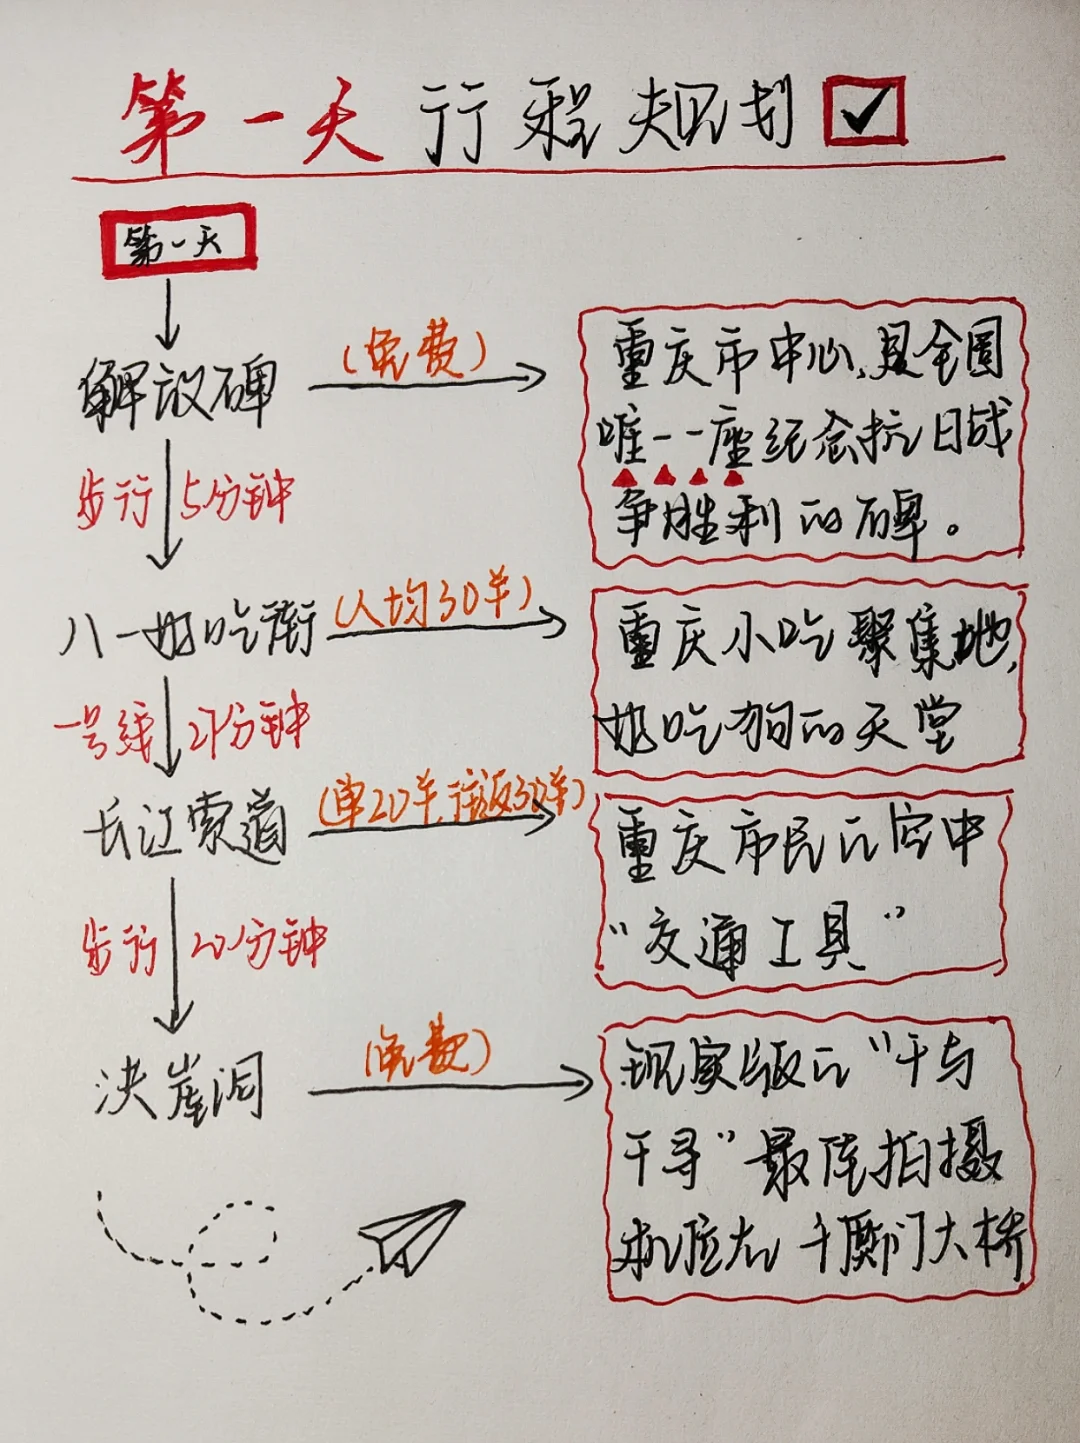 第一天行程规划
第一天
解放碑
(免费)
重庆市中心,是全国
唯一一座纪念抗日战
争胜利的碑。
步行 5分钟
八一好吃街
(人均30羊)
重庆小吃聚集地,
好吃狗的天堂
一号线 27分钟
长江索道
(单20羊,往返30羊)
重庆市民的空中
“交通工具”
步行 20分钟
洪崖洞
(免费)
现实版的“千与
千寻”最佳拍摄
机位在千厮门大桥